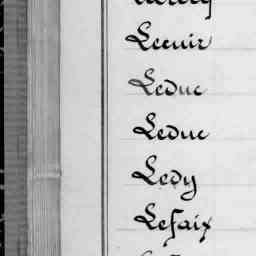 Lecuir
Leduc
Leduc
Ledy
Lefaix